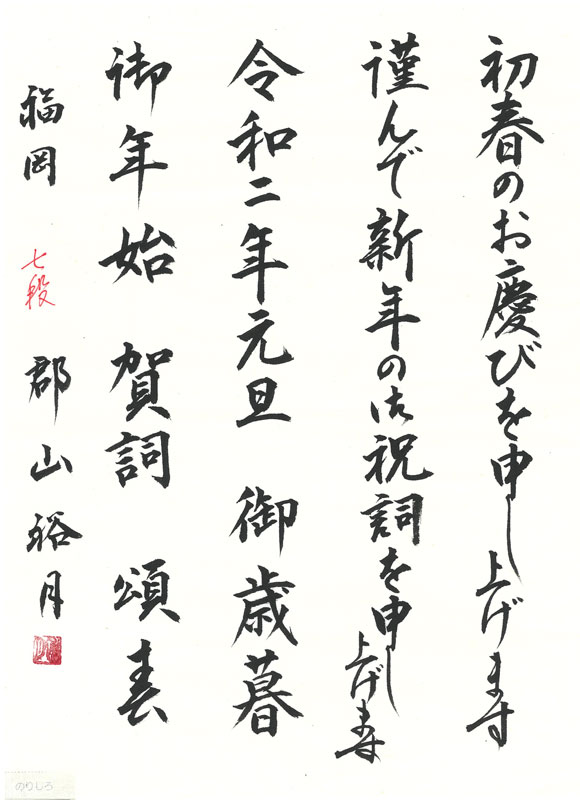 初春のお慶びを申し上げます
謹んで新年の御祝詞を申し上げます
令和二年元旦 御歳暮
御年始 賀詞 頌春
福岡 七段 郡山裕月
のりしろ